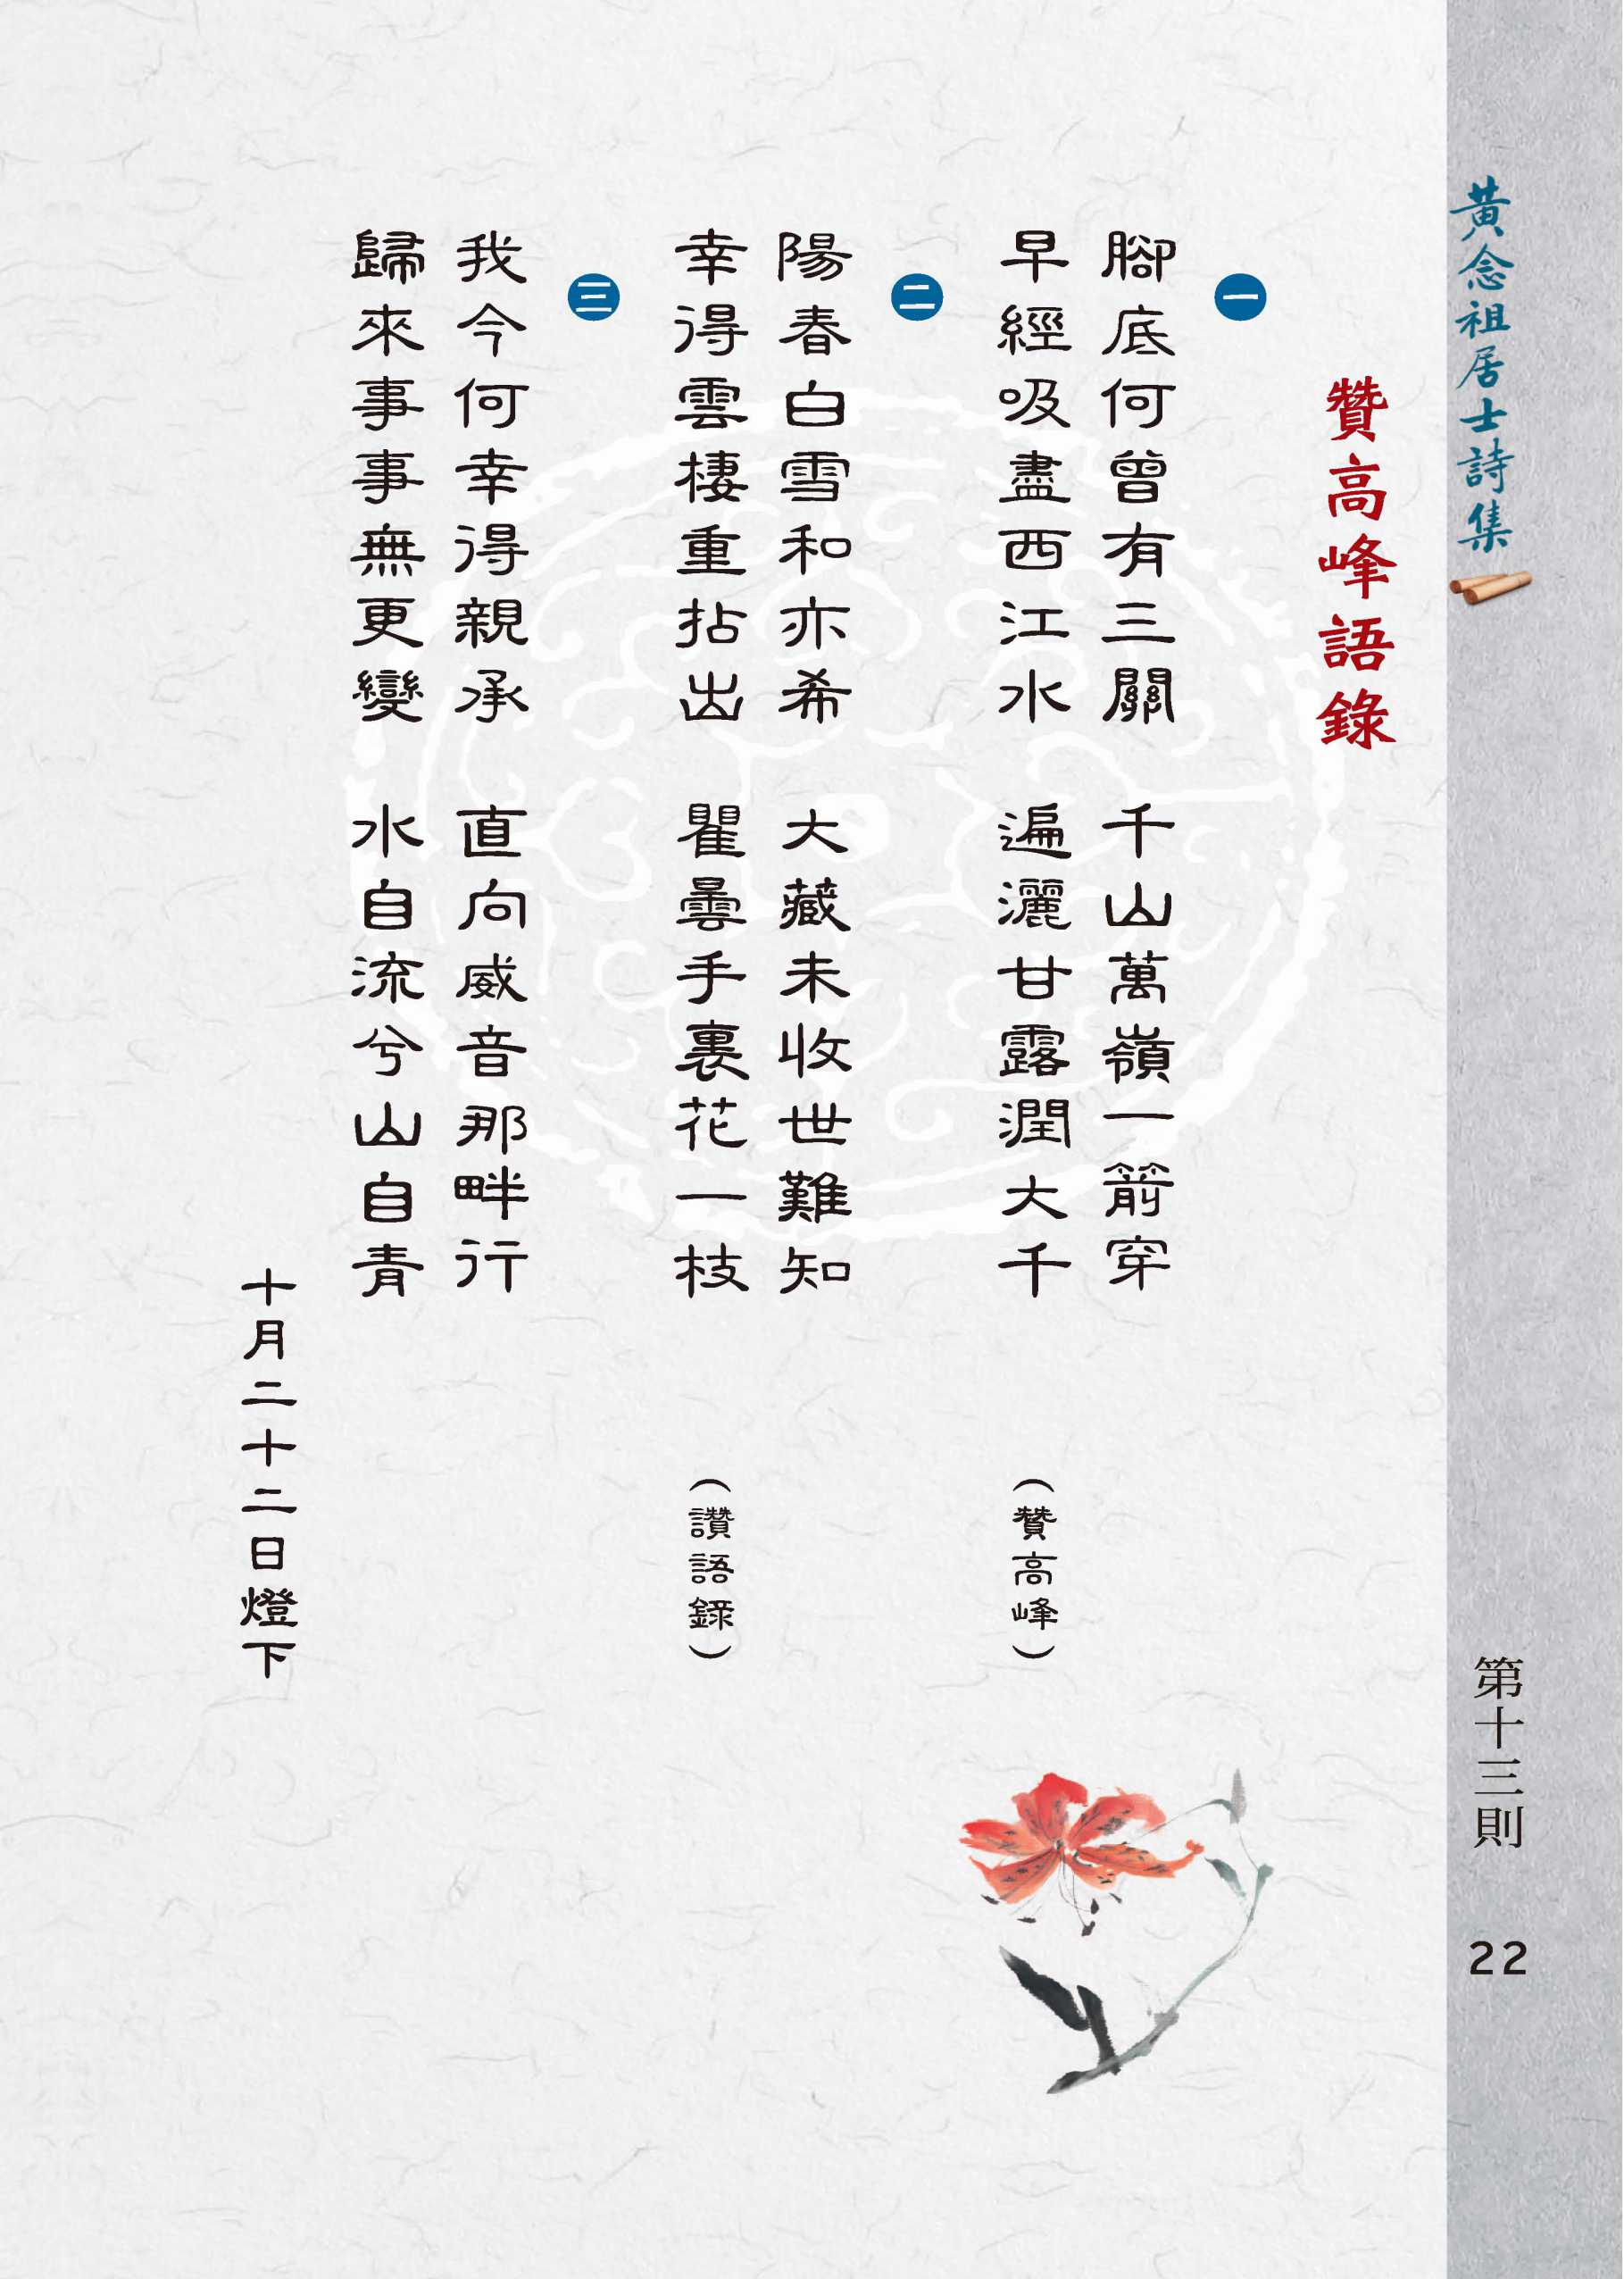 黃念祖居士詩集
贊高峰語錄
一
腳底何曾有三關　千山萬嶺一箭穿
早經吸盡西江水　遍灑甘露潤大千　（贊高峰）
二
陽春白雪和亦希　大藏未收世難知
幸得雲棲重拈出　瞿曇手裏花一枝　（讚語錄）
三
我今何幸得親承　直向威音那畔行
歸來事事無更變　水自流兮山自青
十月二十二日燈下
第十三則
22